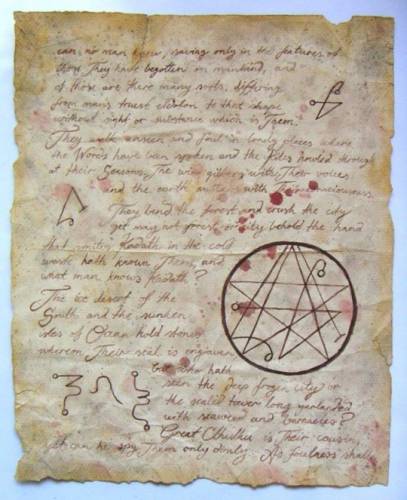 can no man know, saving only in the features of
those They have begotten on mankind, and
of those are there many sorts, differing
from mans truest eidolon to that shape
without sight or substance which is Them.
They walk unseen and foul in lonely places where
the Words have been spoken and the Rites howled through
at their Seasons. The wind gibbers with Their voices
and the earth mutters with Their consciousness.
They bend the forest and crush the city
yet may not forest or city behold the hand
that smites. Kadath in the cold
waste hath known Them, and
what man knows Kadath?
The ice desert of the
South and the sunken
isles of Ocean hold stones
whereon Their seal is engraven
but who hath
seen the deep frozen city or
the sealed tower long garlanded
with seaweed and barnacles?
Great Cthulhu is Their cousin,
yet can he spy Them only dimly. As foulness shall